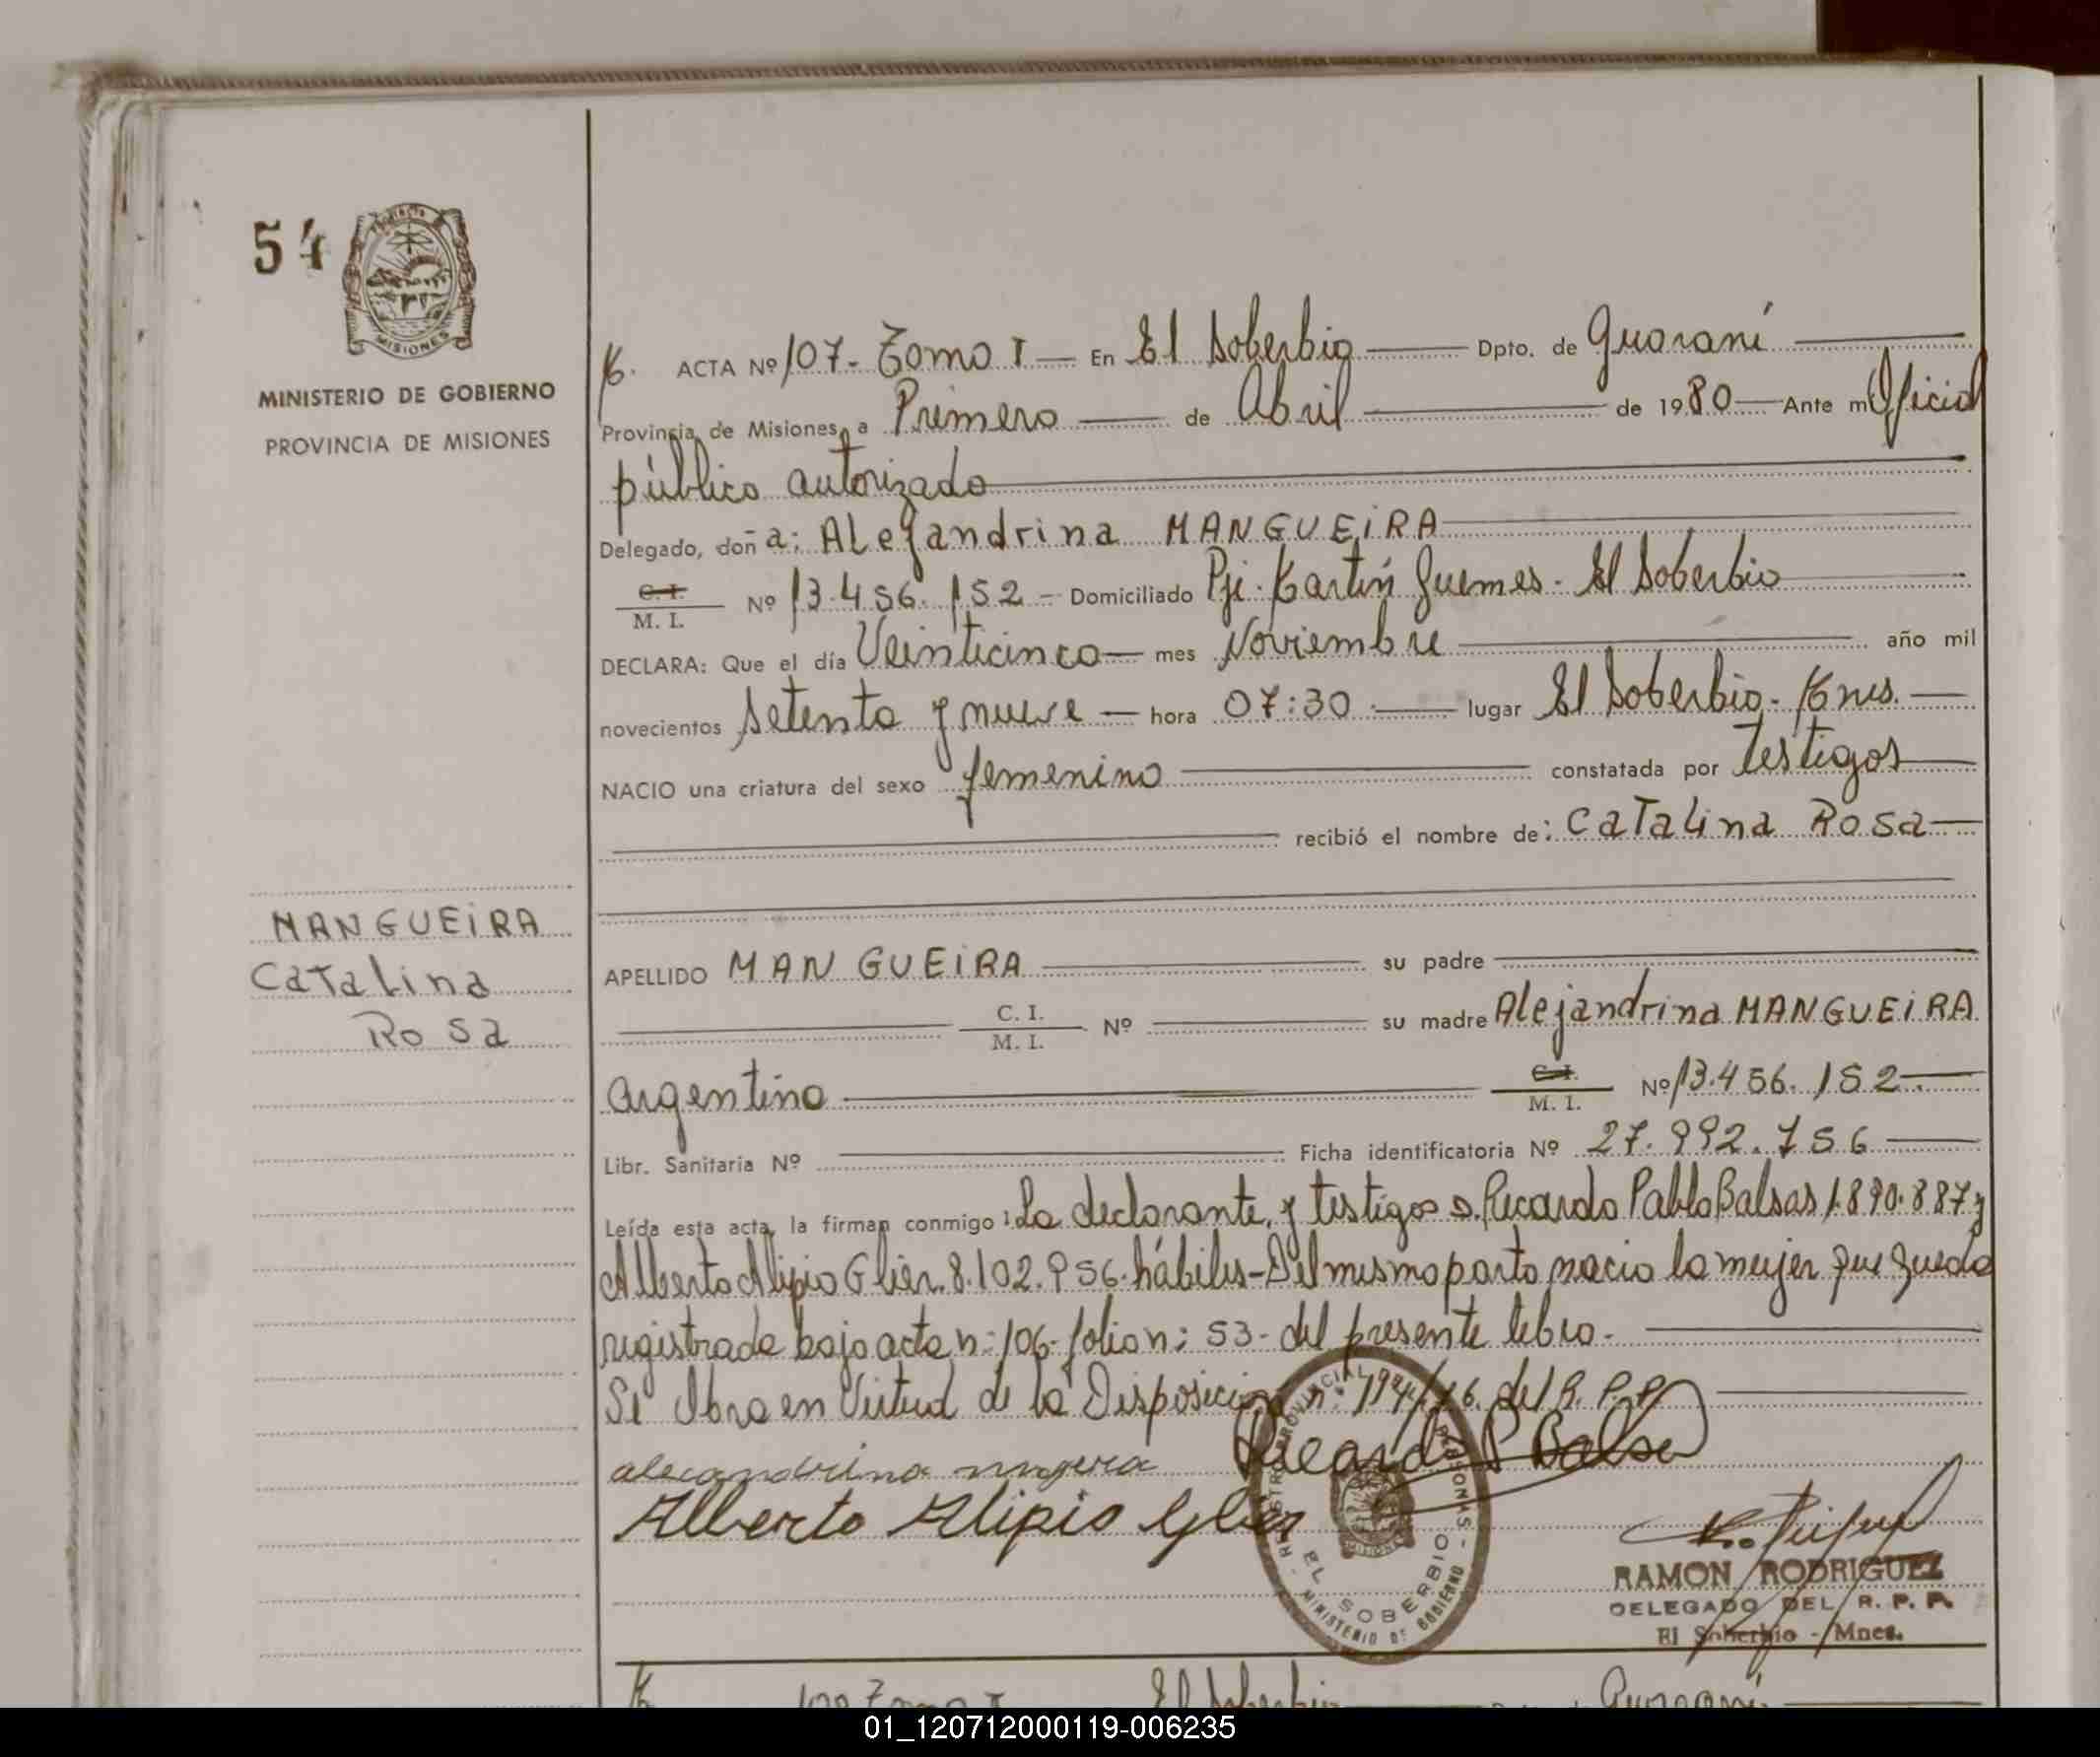 54
MISIONES
MINISTERIO DE GOBIERNO
PROVINCIA DE MISIONES
ACTA Nº 107- Tomo I — En El Soberbio — Dpto. de Guaraní
Provincia de Misiones, a Primero — de Abril — de 1980 — Ante mí Oficial
público autorizado
Delegado, doña: Alejandrina MANGUEIRA
C. I.
M. I. Nº 13.456.152 - Domiciliado Pje. Martín Guemes - El Soberbio
DECLARA: Que el día Veinticinco — mes Noviembre — año mil
novecientos setenta y nueve — hora 07:30 — lugar El Soberbio - Mnes.
NACIO una criatura del sexo femenino — constatada por testigos
recibió el nombre de: CaTaLina Rosa
MANGUEIRA
CaTaLina
Rosa
APELLIDO MANGUEIRA — su padre
C. I.
M. I. Nº — su madre Alejandrina MANGUEIRA
argentina — C. I.
M. I. Nº 13.456.152.-
Libr. Sanitaria Nº — Ficha identificatoria Nº 27.992.756
Leída esta acta, la firman conmigo: La declarante, y testigos Ricardo Pablo Balsas 1.890.887 y
Alberto Alipio Glier. 8.102.956. hábiles - Del mismo parto nacio la mujer que queda
registrada bajo acta n: 106- folio n: 53- del presente libro.-
Se Obra en Virtud de la Disposición n: del R. P. P.
alecandrina
Ricardo P Balsa
Alberto Alipio Glier
REGISTRO PROVINCIAL DE LAS PERSONAS - MINISTERIO DE GOBIERNO
EL SOBERBIO
RAMON RODRIGUEZ
DELEGADO DEL R. P. P.
El Soberbio - Mnes.
Tomo I El Soberbio Guaraní
01_120712000119-006235